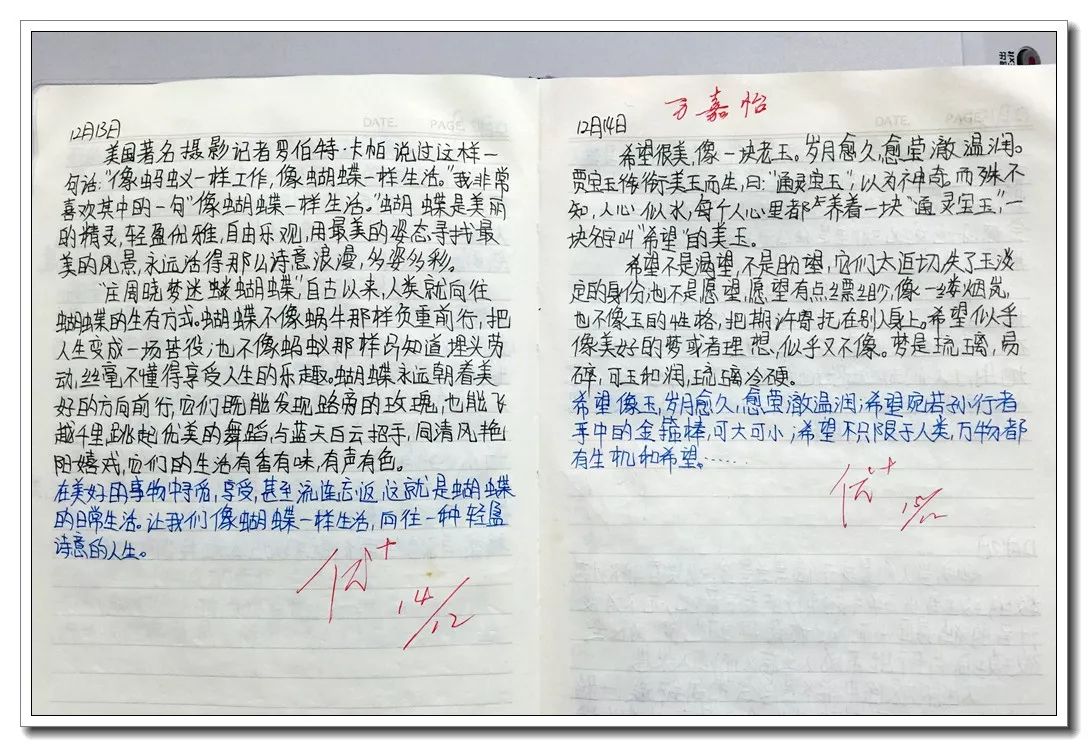 12月13日
DATE.
PAGE.
美国著名摄影记者罗伯特·卡帕说过这样一
句话:“像蚂蚁一样工作,像蝴蝶一样生活。”我非常
喜欢其中的一句“像蝴蝶一样生活。”蝴蝶是美丽
的精灵,轻盈优雅,自由乐观,用最美的姿态寻找最
美的风景,永远活得那么诗意浪漫,多姿多彩。
“庄周晓梦迷蝴蝶”,自古以来,人类就向往
蝴蝶的生存方式。蝴蝶不像蜗牛那样负重前行,把
人生变成一场苦役;也不像蚂蚁那样只知道埋头劳
动,丝毫不懂得享受人生的乐趣。蝴蝶永远朝着美
好的方向前行,它们既能发现路旁的玫瑰,也能飞
越千里,跳起优美的舞蹈,与蓝天白云招手,同清风艳
阳嬉戏,它们的生活有香有味,有声有色。
在美好的事物中寻觅,享受,甚至流连忘返,这就是蝴蝶
的日常生活。让我们像蝴蝶一样生活,向往一种轻盈
诗意的人生。
优+
14/12
万嘉怡
12月14日
DATE.
PAGE.
希望很美,像一块老玉。岁月愈久,愈莹澈温润。
贾宝玉衔美玉而生,曰:“通灵宝玉”,以为神奇。而殊不
知,人心似水,每个人心里都养着一块“通灵宝玉”,一
块名字叫“希望”的美玉。
希望不是渴望,不是盼望,它们太迫切,失了玉淡
定的身份;也不是愿望,愿望有点缥缈,像一缕烟岚,
也不像玉的性格,把期许寄托在别人身上。希望似乎
像美好的梦或者理想,似乎又不像。梦是琉璃,易
碎,可玉和润,琉璃冷硬。
希望像玉,岁月愈久,愈莹澈温润;希望宛若孙行者
手中的金箍棒,可大可小;希望不只限于人类,万物都
有生机和希望。……
优+
15/12